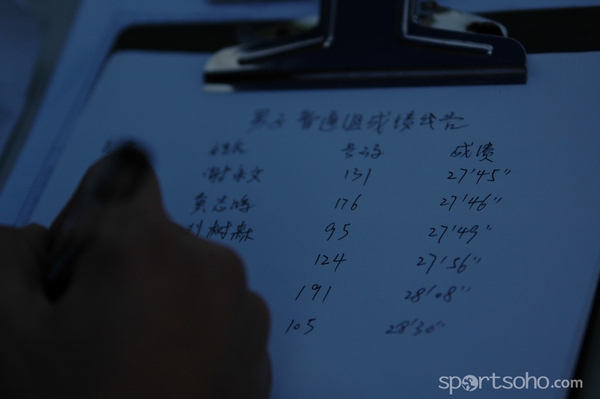 男子 普通组成绩
号码 成绩
谢永文 131 27'45"
176 27'46"
树森 95 27'49"
124 27'56"
191 28'08"
105 28'30"
sportsoho.com